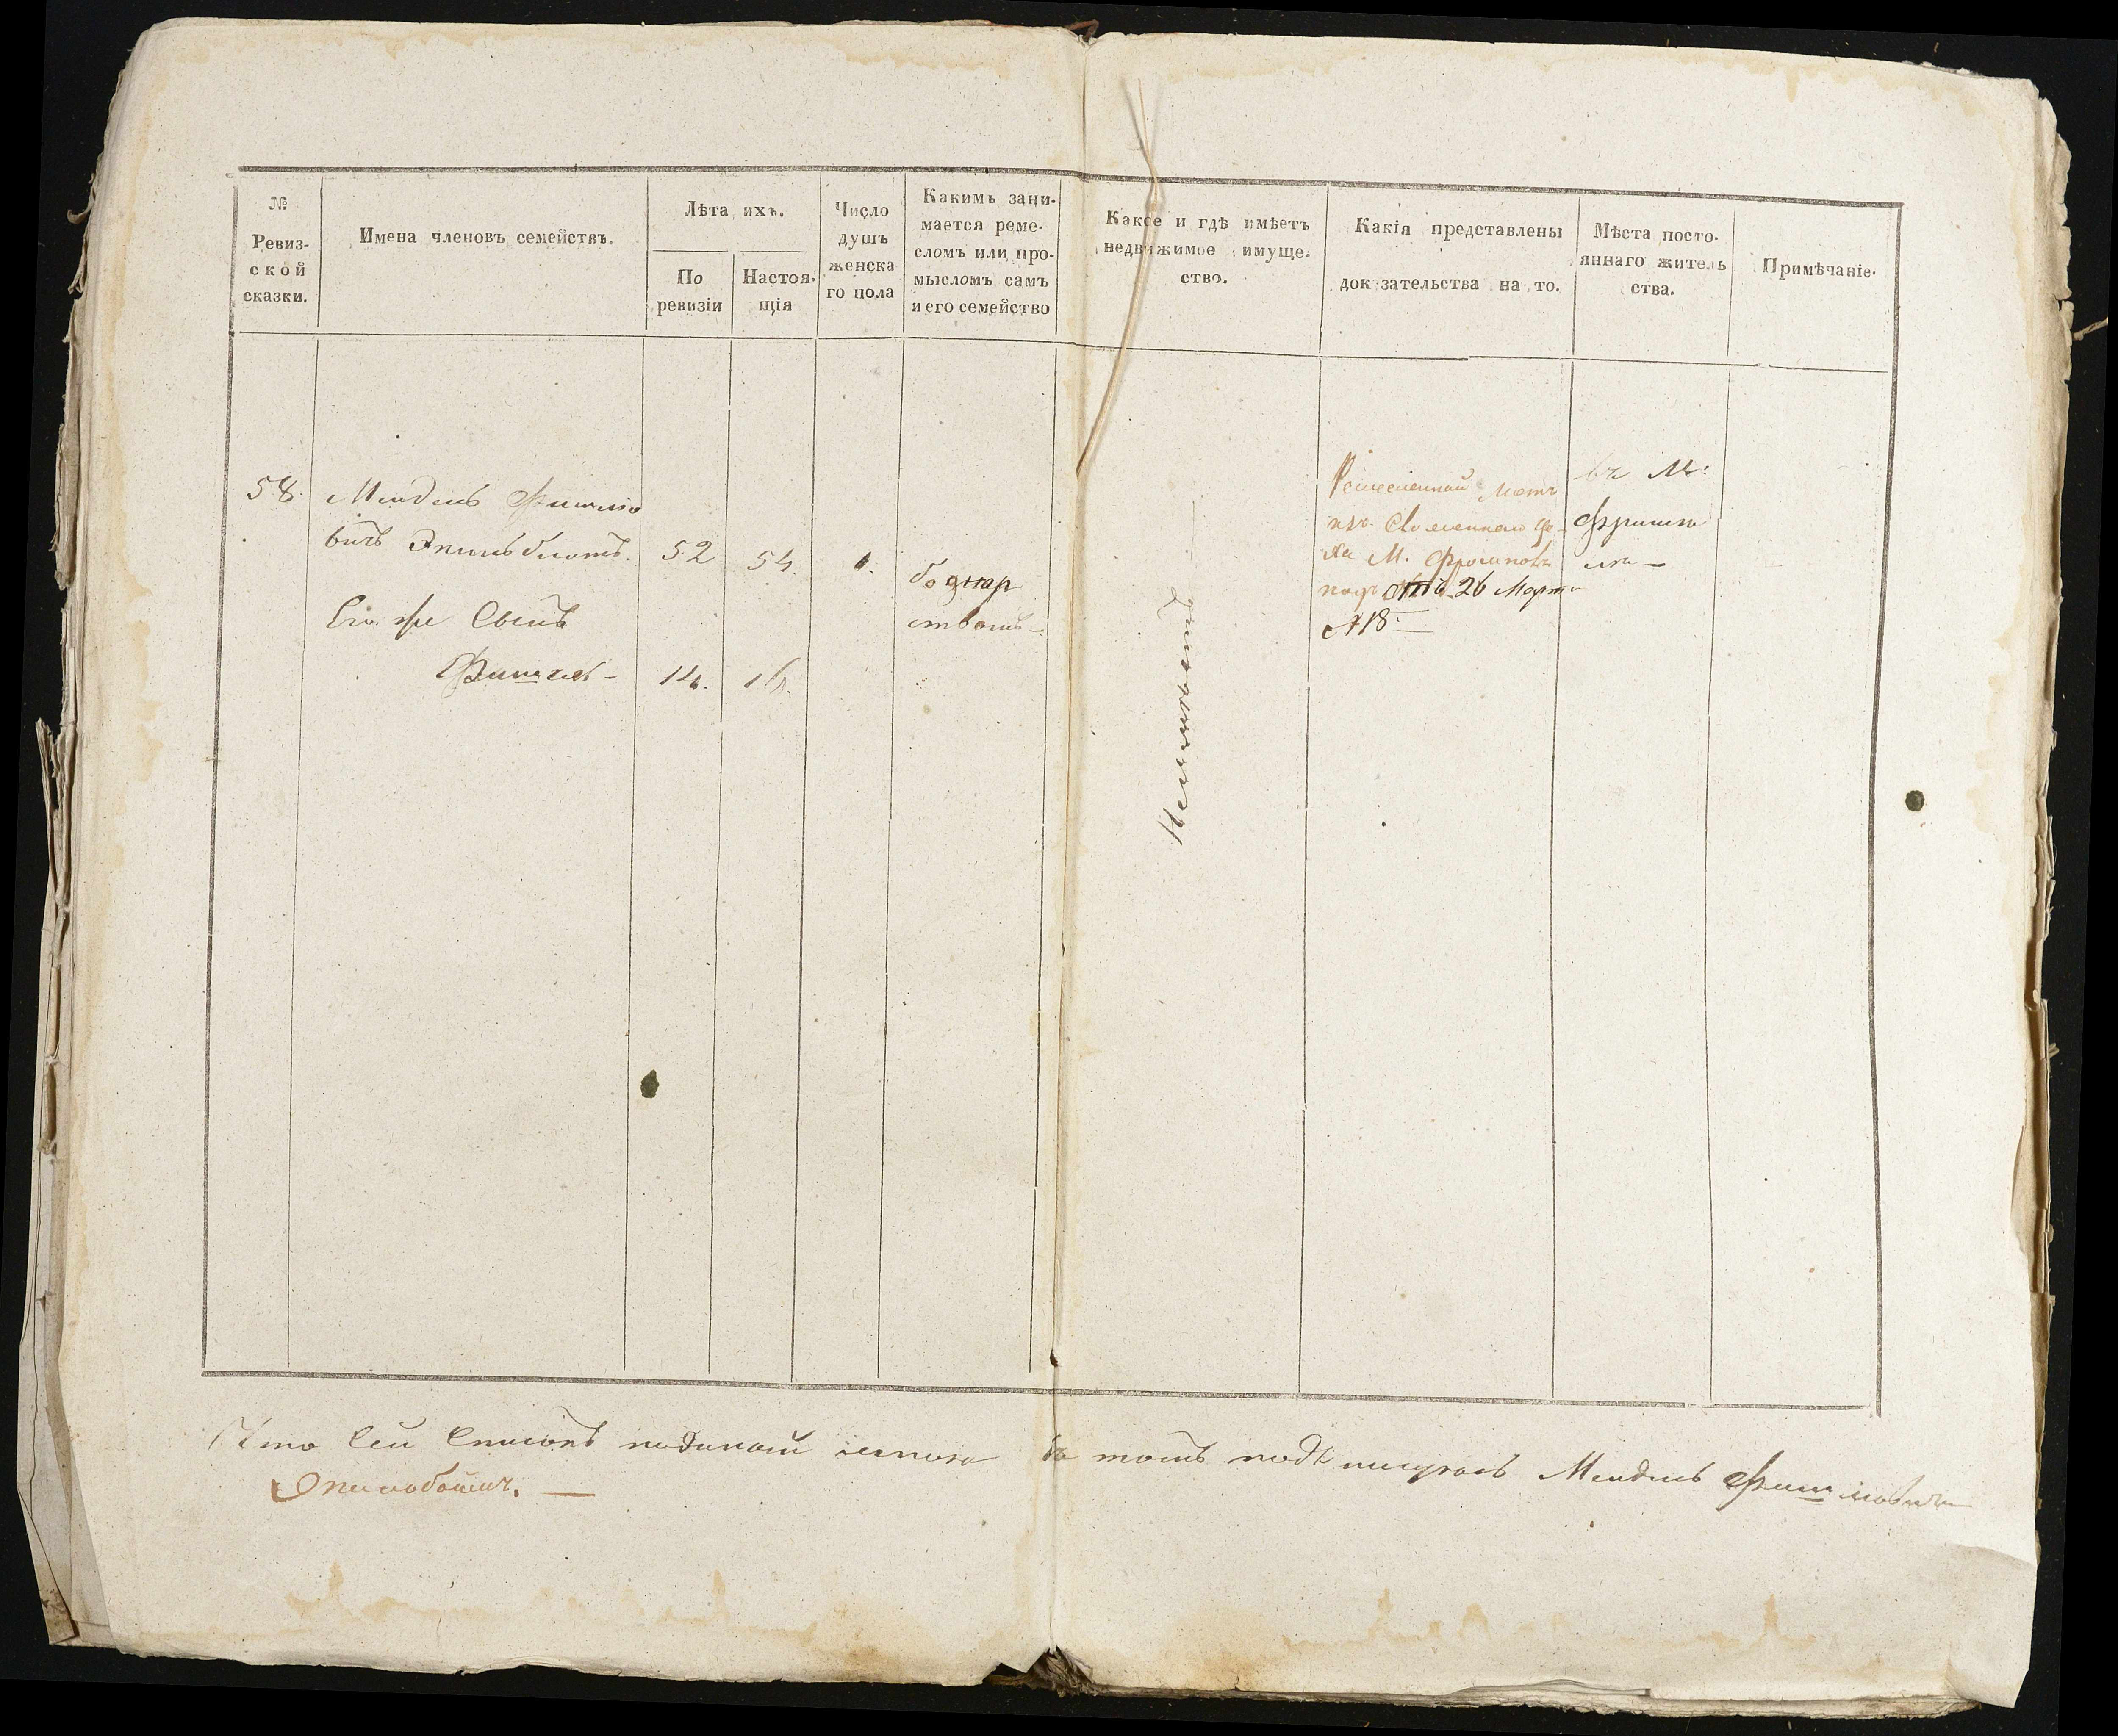 №
Ревиз-
ской
сказки.
Имена членовъ семействъ.
Лѣта ихъ.
По
ревизіи
Настоя-
щія
Число
душъ
женска
го пола
Какимъ зани-
мается реме-
сломъ или про-
мысломъ самъ
и его семейство
Какое и гдѣ имѣетъ
недвижимое имуще-
ство.
Какія представлены
док зательства на то.
Мѣста посто-
яннаго житель
ства.
Примѣчаніе.
58.
Мендель Фишлио
вичъ
52 54. 1.
боднар
ствомъ
Его же Сынъ
Фишель 14. 16.
Неимѣетъ
М.
26 Марта
№18
въ М:
Что сей Списокъ въ томъ подписуюсь Мендель Фишліовичъ